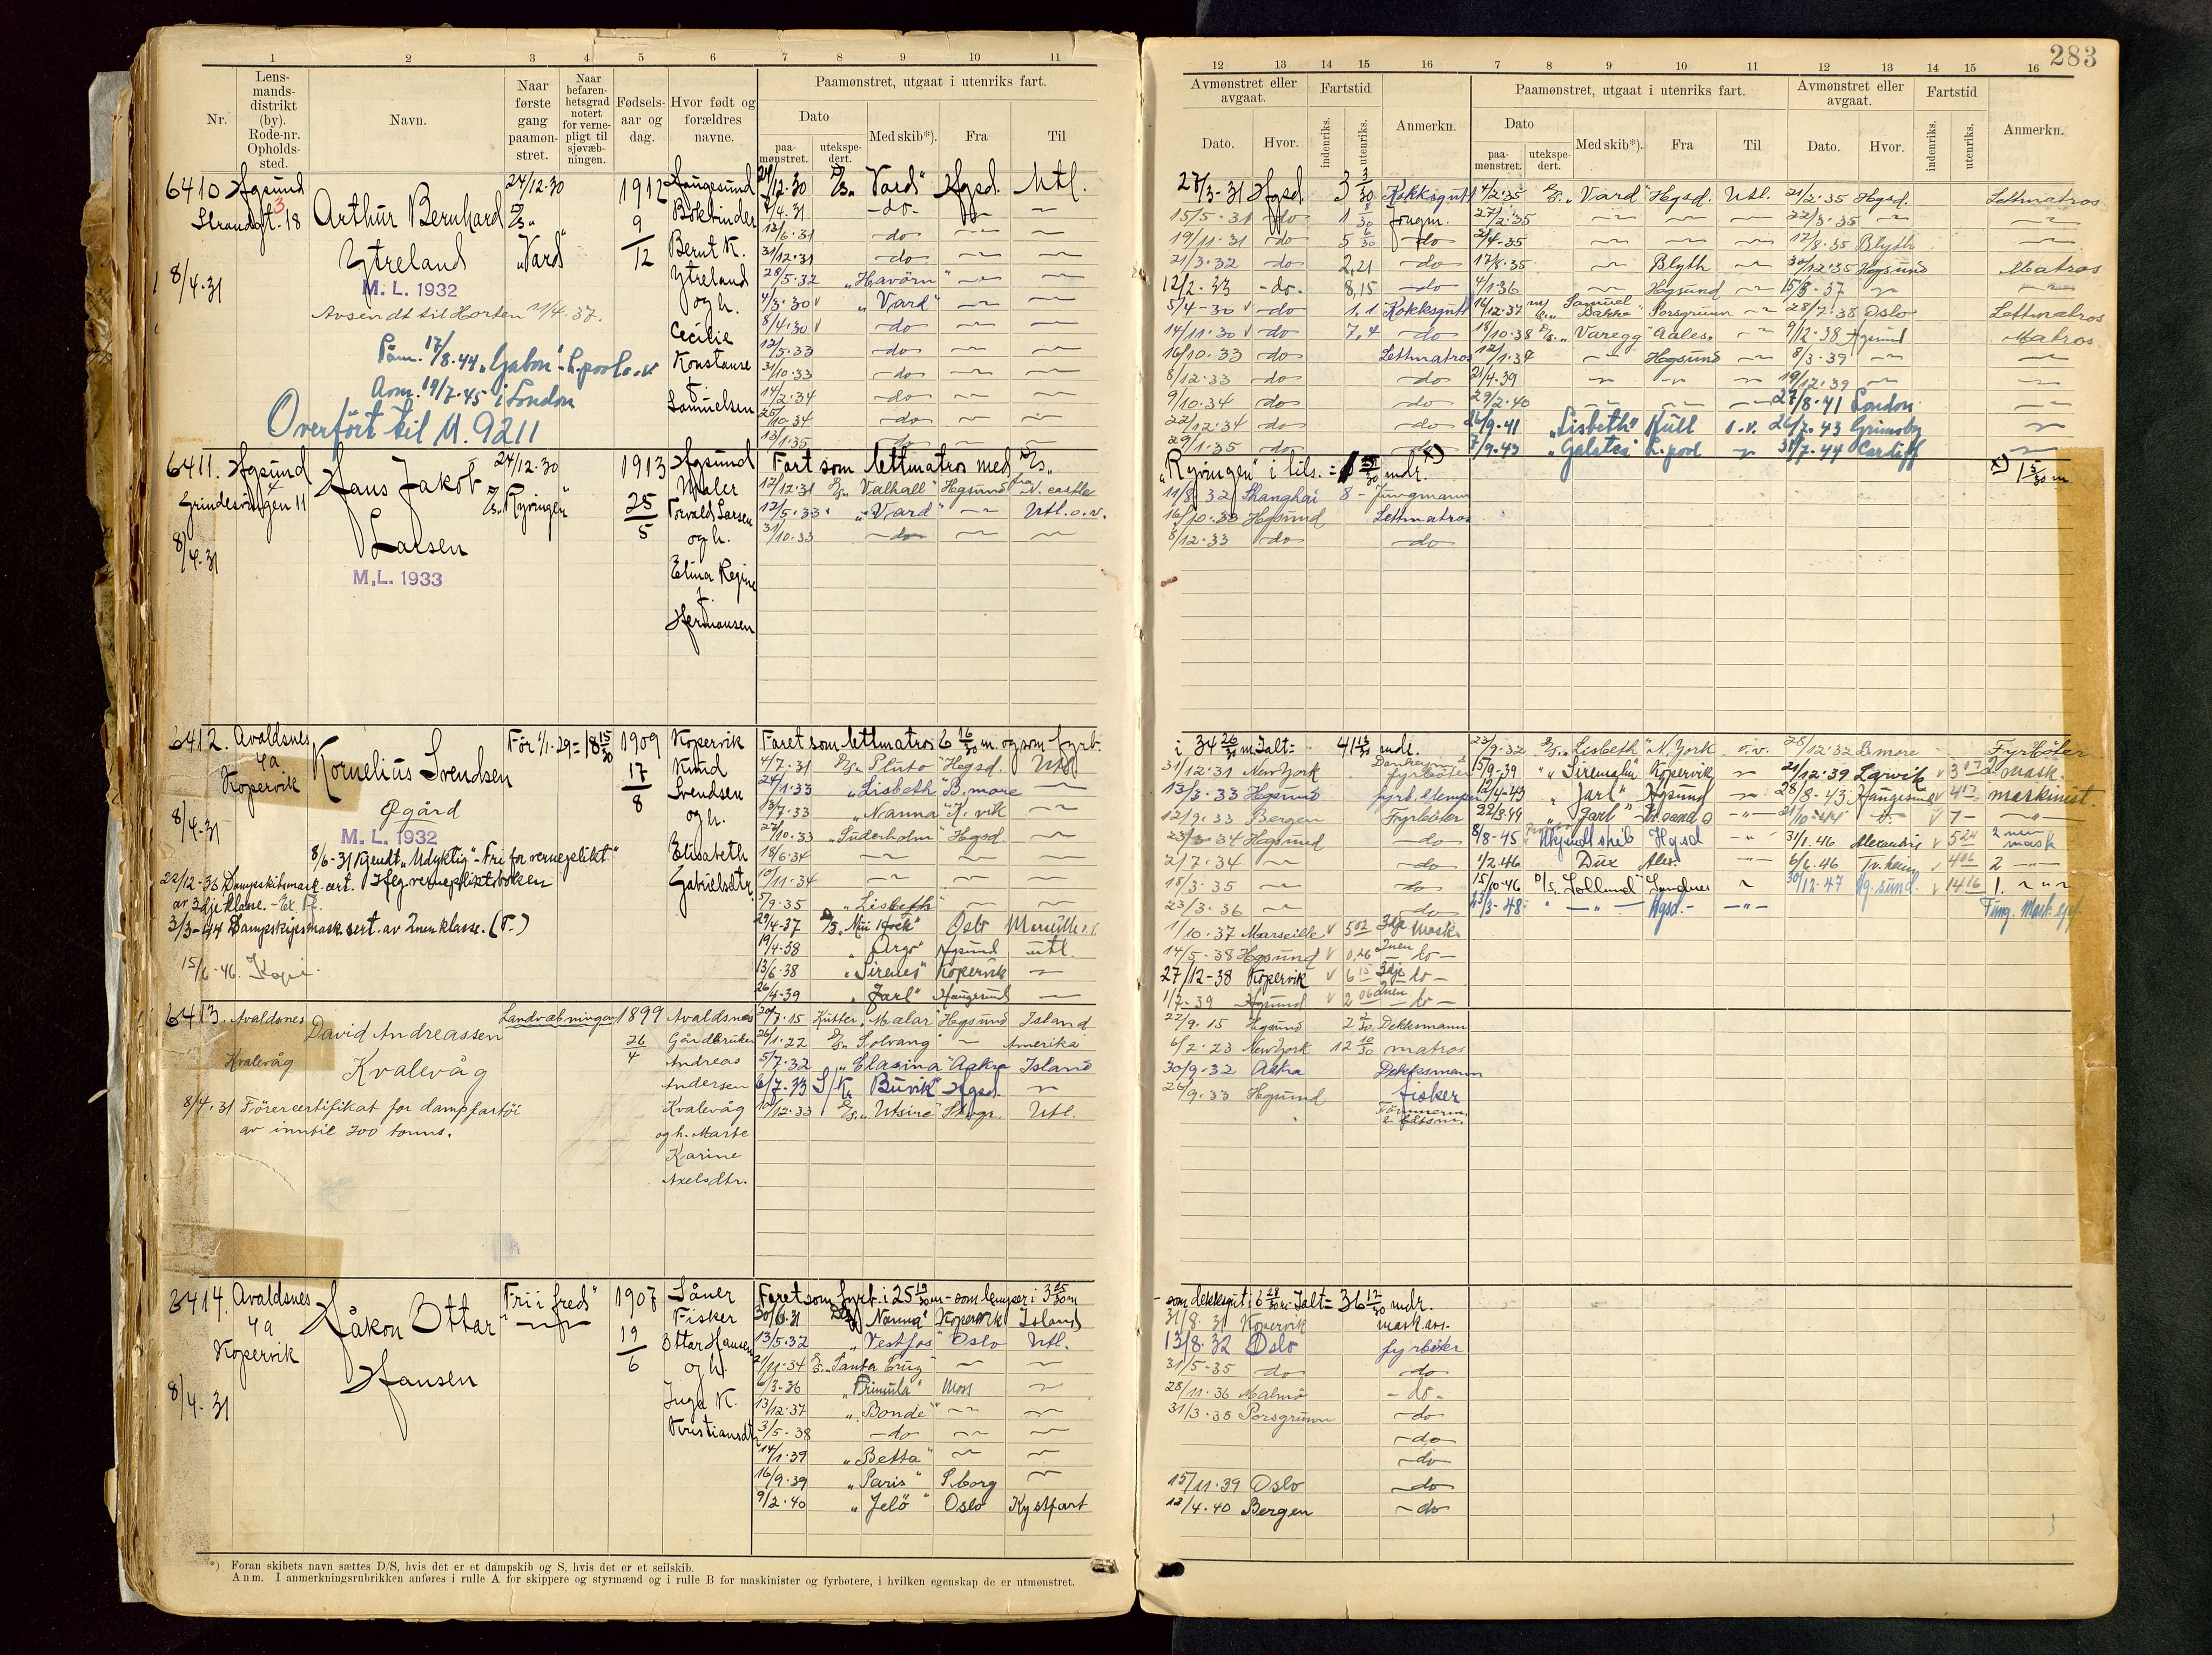 283
1 2 3 4 5 6 7 8 9 10 11
Nr.
Lens-
mands-
distrikt
(by).
Rode-nr.
Opholds-
sted.
Navn.
Naar
første
gang
paamøn-
stret.
Naar
befaren-
hetsgrad
notert
for verne-
pligt til
sjøvæb-
ningen.
Fødsels-
aar og
dag.
Hvor født og
forældres
navne.
Paamønstret, utgaat i utenriks fart.
Dato
paa-
mønstret.
utekspe-
dert.
Med skib*).
Fra
Til
12 13 14 15 16 7 8 9 10 11 12 13 14 15 16
Avmønstret eller
avgaat.
Dato.
Hvor.
Fartstid
indenriks.
utenriks.
Anmerkn.
Paamønstret, utgaat i utenriks fart.
Dato
paa-
mønstret.
utekspe-
dert.
Med skib*).
Fra
Til
Avmønstret eller
avgaat.
Dato.
Hvor.
Fartstid
indenriks.
utenriks.
Anmerkn.
6410 Hgsund
3
Strandgt. 18
8/4.31
Arthur Bernhard
Ytreland
M. L. 1932
Avsendt til Horten 11/4.37.
Påm. 17/8.44 "Gabon" L.pool o.v.
Avm. 19/7.45 i London
Overført til M. 9211
24/12.30
D/S "Vard"
1912
9/12
Haugesund
Bokbinder
Bernt K.
Ytreland
og h.
Cecilie
Konstanse
f.
Samuelsen
24/12.30 D/S "Vard" Hgsd. Utl.
7/4.31 -do-
12/6.31 -do-
31/12.31 -do-
28/5.32 "Havørn"
4/3.30 v "Vard"
8/4.30 v -do-
12/5.33 -do-
31/10.33 -do-
14/2.34 -do-
25/10.34 -do-
13/1.35 -do-
27/3-31 Hgsd. 3 3/30 Kokksgutt
15/5.31 -do- Jungm.
19/11.31 -do- -do-
21/3.32 -do- 2,21 -do-
12/2.33 -do- 8,15 -do-
5/4-30 v -do- 1.1 Kokksgutt
14/11.30 v -do- 7,4 -do-
16/10.33 -do- Lettmatros
8/12.33 -do- -do-
9/10.34 -do- -do-
22/12.34 -do- -do-
29/1.35 -do- -do-
4/2.35 D/S "Vard" Hgsd. Utl. 21/2.35 Hgsd. Lettmatros
27/2.35 22/3.35
2/4-35 12/8.35 Blyth
17/8.35 Blyth 30/12.35 Hgsund Matros
4/1.36 Hgsund
16/12.37 "Samuel Bakke" Porsgrunn 28/7.38 Oslo Lettmatros
18/10.38 D/S "Varegg" Aales. 9/12.38 Hgsund Matros
Hgsund 8/3.39
21/4.39 19/12.39
29/2.40 27/8.41 London
26/9.41 "Lisbeth" Hull o.v. 26/7.43 Grimsby
7/9.43 "Galatea" L.pool 31/7.44 Cardiff
6411. Hgsund
4
Grindesvingen 11
8/4.31
Hans Jakob
Larsen
M. L. 1933
24/12.30
D/S "Ryvingen"
1913
25/5
Hgsund
Maler
Torvald Larsen
og h.
Elina Regine
f.
Hermansen
Fart som lettmatros med D/S
12/12.31 D/S "Valhall" Hgsund fra N. castle
12/5.33 "Vard" Utl. o.v.
31/10.33 -do-
"Ryvingen" i tils. = mdr. x)
11/8.32 Shanghai 8 - Jungmann
16/10.33 Hgsund Lettmatros
8/12.33 -do- -do-
6412. Avaldsnes
4a
Kopervik
8/4.31
Kornelius Svendsen
Øgård
M. L. 1932
8/6-31 Kjendt "Udyktig" - Fri for verneplikt"
Iflg. vernepliktsboken
22/12-36 Dampskibsmask. cert.
av 3dje klasse. -
3/3-44 Dampskipsmask. sert. av 2nen klasse. (T.)
15/6-46. Kopi.
Før 1/1.29 = 18 15/30
1909
17/8
Kopervik
Knud
Svendsen
og h.
Elisabeth
Gabrielsdtr.
Faret som lettmatros 6 16/30 m. og som fyrb.
4/7.31 D/S "Pluto" Hgsd. Utl.
24/1.33 "Lisbeth" B.more
13/7.33 "Nanna" K.vik
27/10.33 "Suderholm" Hgsd.
18/6.34
10/11.34
5/9.35 "Lisbeth"
29/4-37 Oslo Marseille o.v.
19/4-38 "Argo" Hgsund utl.
13/6-38 "Sirenes" Kopervik
26/4-39 "Jarl" Haugesund
i 34 26/30 m. Ialt = 41 mdr.
31/12.31 New York Donkeym. & fyrbøter
13/3.33 Hgsund fyrb. & lemper
12/9.33 Bergen Fyrbøter
23/3.34 Hgsund -do-
2/7.34 -do-
18/3.35 -do-
23/3.36 -do-
1/10.37 Marseille v 5 02 3dje Mask.
14/5-38 Hgsund v 0,26 2nen do-
27/12-38 Kopervik v 6 15 3dje do-
1/7-39 Hgsund v 2 06 2nen do-
23/9.32 D/S "Lisbeth" N. York o.v. 28/12.32 B.more Fyrbøter
15/9-39 "Sirenes" Kopervik 21/12.39 Larvik v 3 07 2. mask.
12/4-43 "Jarl" Hgsund 28/8-43 Haugesund v maskinist.
22/3-44 "Jarl" 21/10-44 v 7-
8/8-45 Hgsd 31/1.46 v 5 24 2nen mask
1/2.46 Dux Alex. 6/6.46 Tr.heim v 2
15/10-46 D/S "Lolland" Sandnes 30/12-47 Hg.sund. v 14 16 1.
13/3-48 Hgsd. Fung. Mask.
6413. Avaldsnes
Kvalevåg
David Andreassen
Kvalevåg
8/4.31 Førercertifikat for dampfartøi
av inntil 200 tonns.
Landvæbningen
1899
26/4
Avaldsnes
Gårdbruker
Andreas
Andersen
Kvalevåg
og h. Marte
Karine
Axelsdtr.
20/7.15 Kutter "Mælar" Hgsund Island
26/1.22 D/S "Solvang" Amerika
5/7.32 "Elasina" Aakra Island
6/7.33 S/K. "Buvik" Hgsd.
10/12.33 D/S "Utsire" Utl.
22/9.15 Hgsund Dekksmann
6/2.23 New York 12 10/30 matros
30/9.32 Akra Dekksmann
26/9.33 Hgsund fisker
Tømmerm.
& båtsm.
6414. Avaldsnes
4a
Kopervik
8/4-31
Håkon Ottar
Hansen
"Fri i fred"
1907
19/6
Såner
Fisker
Ottar Hansen
og h.
Inga K.
Kristiansdtr.
Faret som fyrb. i 25 m - som lemper i 3 25/30 m
30/6.31 "Nanna" Kopervik Island
13/5.32 "Vestfos" Oslo Utl.
2/11.34 D/S "Santa Cruz"
6/3-36 "Primula" Moss
13/12.37 "Bonde"
3/5-38 -do-
14/1.39 "Betta"
16/9.39 "Paris" S.borg
9/2.40 "Jelö" Oslo Kystfart
- som dekksgut i 6 28/30 m. Ialt = 36 12/30 mdr.
31/8.31 Kopervik mask. ass.
13/8.32 Oslo fyrbøter
31/5-35 do do
28/11.36 Malmö - do -
31/3.38 Porsgrunn -do
-do
-do
15/11.39 Oslo -do
12/4.40 Bergen -do
*) Foran skibets navn sættes D/S, hvis det er et dampskib og S, hvis det er et seilskib.
Anm. I anmerkningsrubrikken anføres i rulle A for skippere og styrmænd og i rulle B for maskinister og fyrbøtere, i hvilken egenskap de er utmønstret.